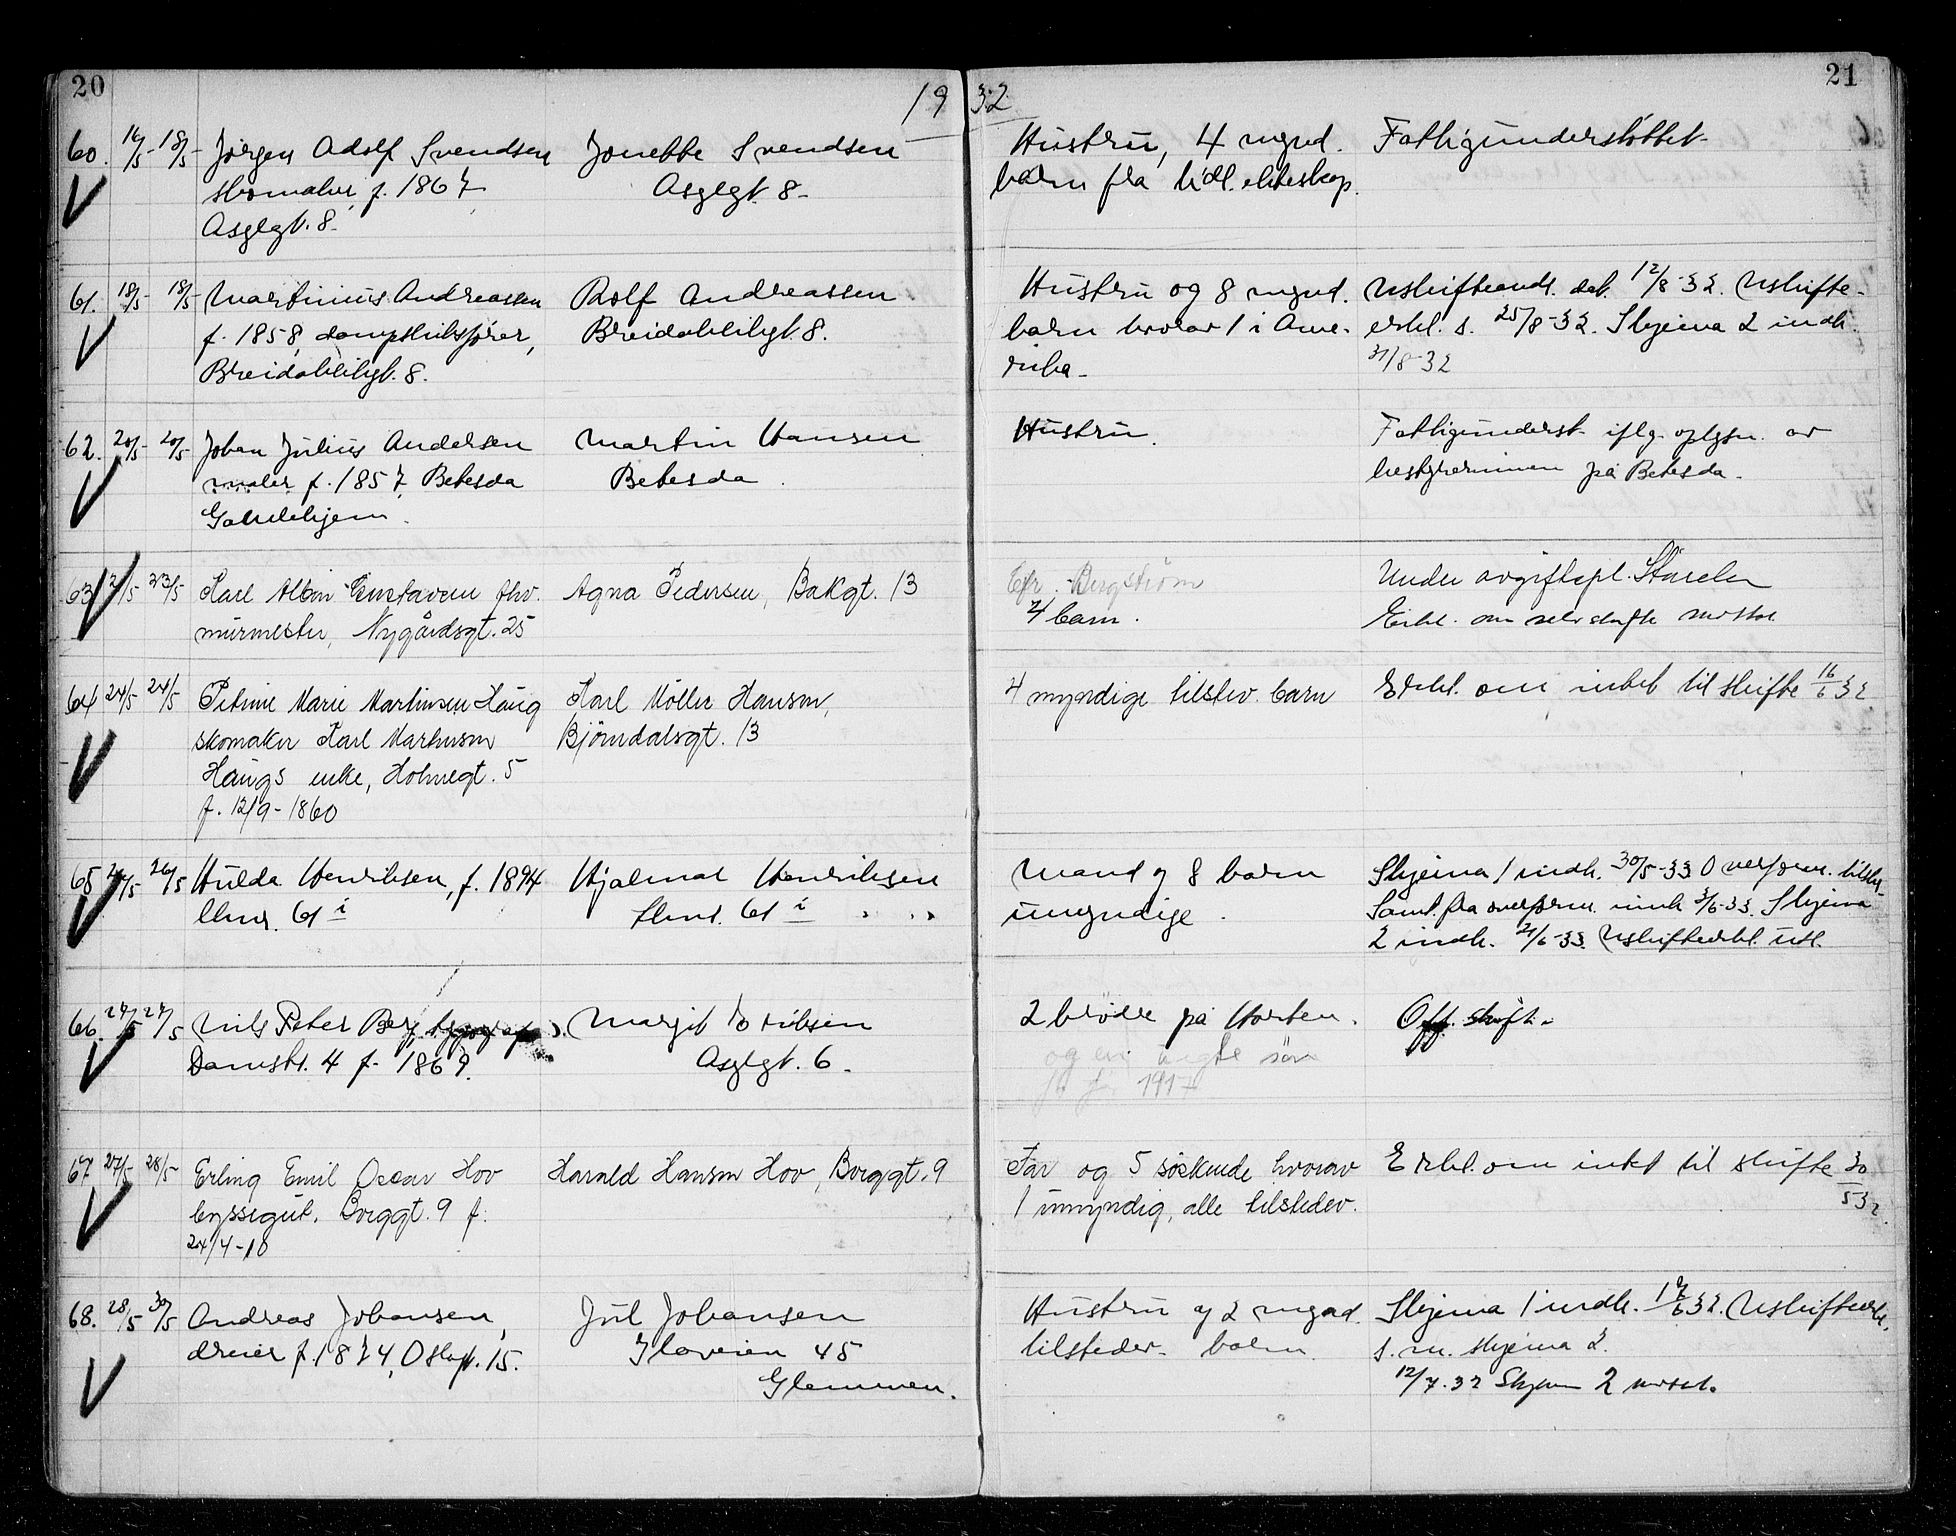 20
19 32
21
60. 14/5- 18/5- Jörgen Adolf Svendsen
skomaker, f. 1867
Asylgt. 8-
Jonette Svendsen
Asylgt. 8-
Hustru, 4 mynd.
barn fra tidl. ekteskap.
Fattigunderstöttet-
61. 18/5- 18/5- Martinius Andreassen
f. 1858, dampskibsfører,
Breidablikgt. 8.
Rolf Andreassen
Breidablikgt. 8.
Hustru og 8 mynd.
barn hvorav 1 i Ame-
rika-
Uskifteandr. dat. 12/8-32. Uskifte-
erkl. s. 25/8-32. Skjema 2 indk.
31/8-32
62. 20/5- 20/5- Johan Julius Andersen
maler f. 1857, Betesda
Gamlehjem.
Martin Hansen
Betesda.
Hustru.
Fattigunderst. iflg. oplysn. av
bestyrerinnen på Betesda.
63 2/5 23/5 Karl Albin Gustavsen fhv.
murmester, Nygårdsgt. 25
Agna Pedersen, Bakgt. 13
Efr. Bergström
4 barn.
Under avgiftspl. Størrelse
Erkl. om selvskifte mottat
64 24/5 24/5 Petrine Marie Martinsen Haug
skomaker Karl Martinsen
Haugs enke, Holmegt. 5
f. 12/9-1860
Karl Möller Hanson,
Bjørndalsgt. 13
4 myndige tilstev. barn
Erkl. om intet til skifte 16/6 32
65 26/5 26/5 Hulda Henriksen, f. 1894
Lhus. 61 i
Hjalmar Henriksen
Lhus. 61 i
Mand og 8 barn
umyndige.
Skjema 1 indk. 30/5-33 Overform. tilskr.
Samt. fra overform. innk 3/6-33. Skjema
2 indk. 21/6-33. Uskifteerkl. utst.
66. 27/5 27/5 Nils Peter Berg, typograf
Damstr. 4 f. 1869.
Margit Eriksen
Asylgt. 6.
2 brödre på Horten.
og en uegte sön
f. 1917
Off. skift.
67 27/5 28/5- Erling Emil Oscar Hov
byssegut. Borggt. 9 f.
24/4-10
Harald Hanson Hov, Borggt. 9
Far og 5 søskende hvorav
1 umyndig, alle tilstedev.
Erkl. om intet til skifte 30/5 32.
68. 28/5 30/5 Andreas Johansen,
dreier f. 1874, Oslogt. 15.
Jul Johansen
Glaveien 45
Glemmen.
Hustru og 2 mynd.
tilstedev. barn
Skjema 1 indk. 17/6 32. Uskifteerkl.
s. m. skjema 2.
12/7.32 Skjema 2 mottat.